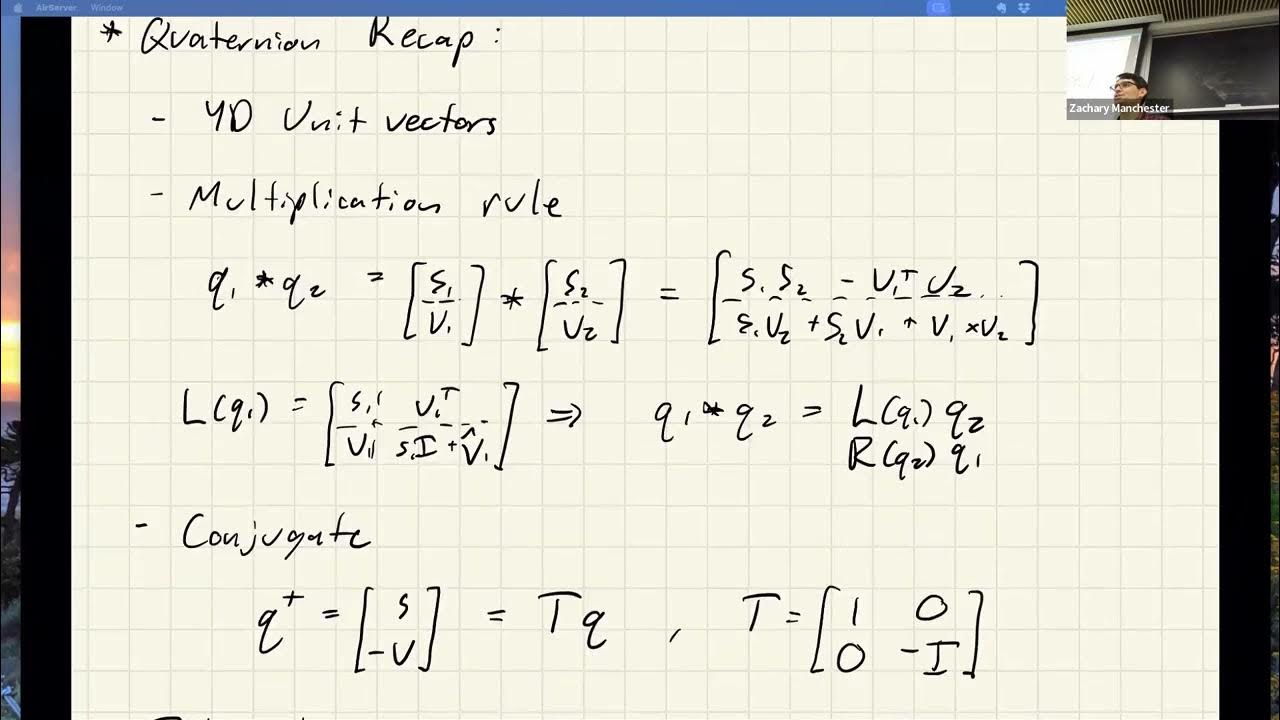 AirServer Window
Zachary Manchester
* Quaternion Recap:
- 4D Unit vectors
- Multiplication rule
q₁ * q₂ = [s₁ / v₁] * [s₂ / v₂] = [s₁ s₂ - v₁ᵀ v₂ / s₁ v₂ + s₂ v₁ + v₁ × v₂]
L(q₁) = [s₁ v₁ᵀ / v₁ s₁I + v̂₁] ⇒ q₁ * q₂ = L(q₁) q₂
R(q₂) q₁
- Conjugate
q⁺ = [s / -v] = Tq , T = [1 0 / 0 -I]